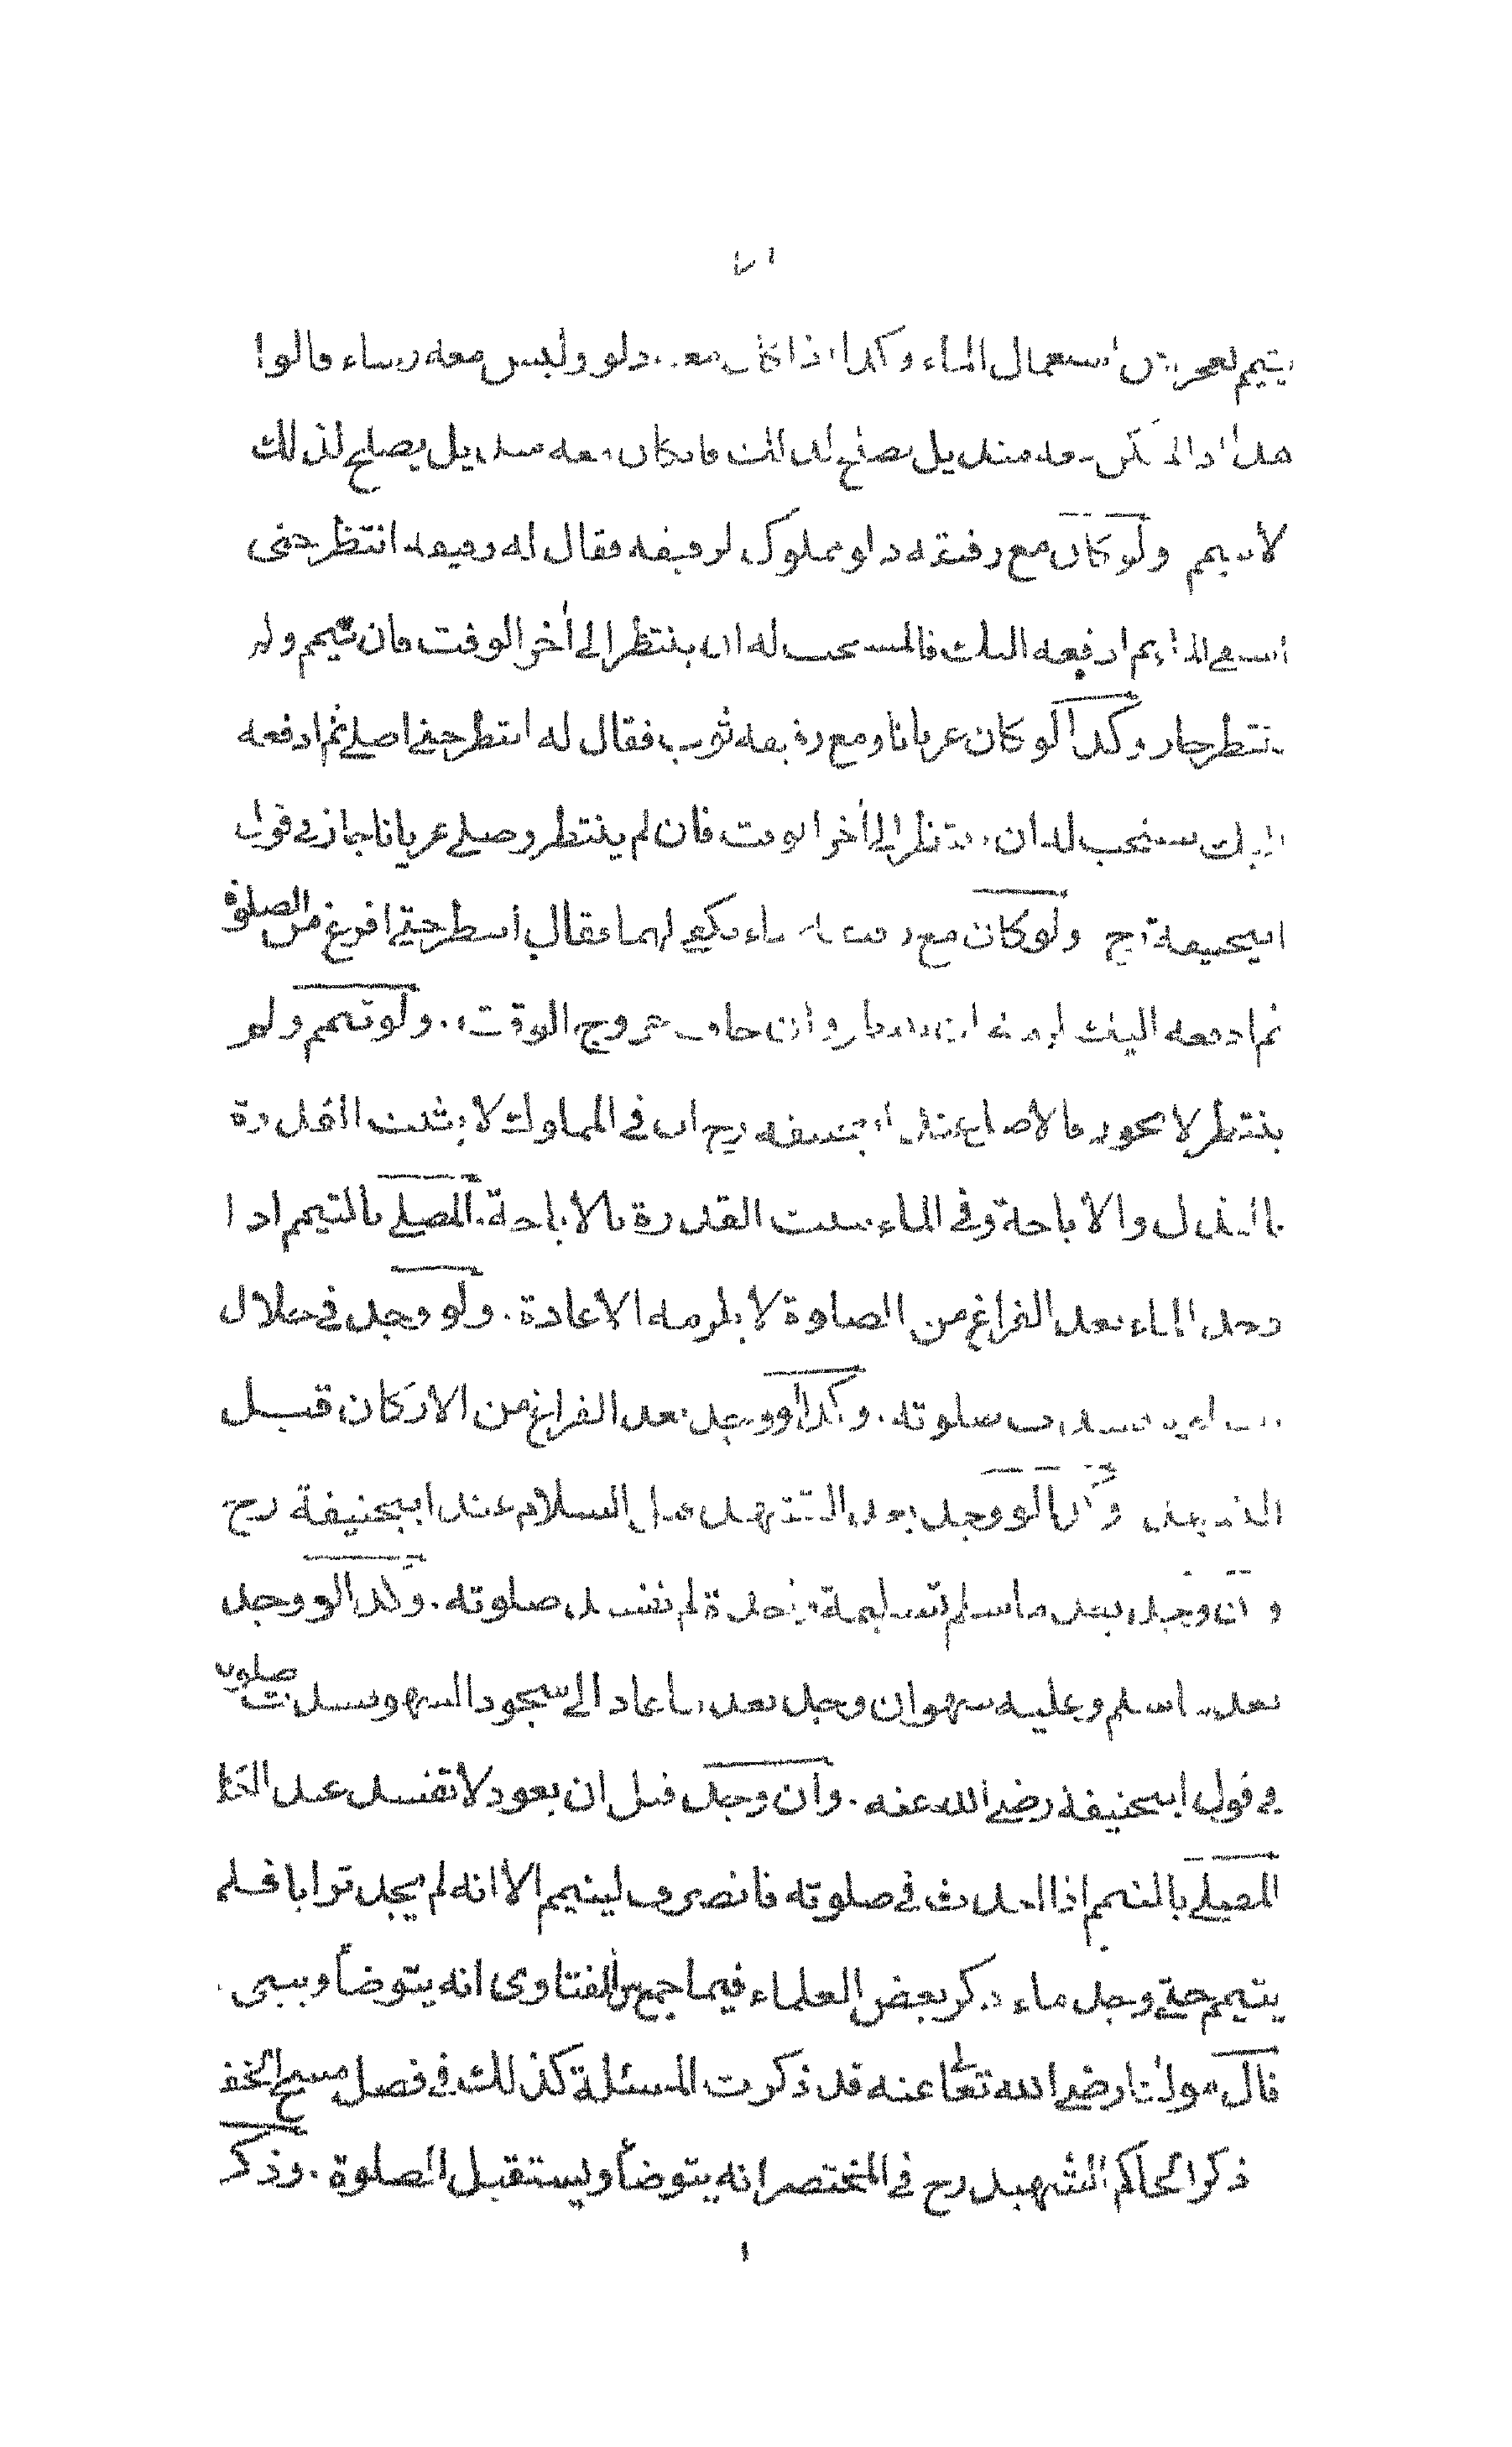 يتيمم لعجزه عن استعمال الماء وكذا اذا كان معه دلو وليس معه رشاء قالوا
هذا اذا لم يكن معه منديل يصلح لذلك فان كان معه منديل يصلح لذلك
لا يتيمم ولو كان مع رفيقه دلو مملوك لرفيقه فقال له رفيقه انتظر حتى
استقي الماء ثم ادفعه اليك فالمستحب له ان ينتظر الى أخر الوقت فان تيمم ولم
ينتظر جاز وكذا لو كان عريانا ومع رفيقه ثوب فقال له انتظر حتى اصلي ثم ادفعه
اليك يستحب له ان ينتظر الى أخر الوقت فان لم ينتظر وصلى عريانا جاز في قول
ابيحنيفة رح ولو كان مع رفيقه ماء يكفي لهما فقال انتظر حتى افرغ من الصلوة
ثم ادفعه اليك لزمه ان ينتظر وان خاف خروج الوقت. ولو تيمم ولم
ينتظر لا يجوز فالاصل عند ابيحنيفه رح ان في المملوك لا يثبت القدرة
بالبذل والاباحة وفي الماء يثبت القدرة بالاباحة. المصلي بالتيمم اذا
وجد الماء بعد الفراغ من الصلوة لا يلزمه الاعادة. ولو وجد في خلال
فسدت صلوته. وكذا لو وجد بعد الفراغ من الاركان قبل
التشهد وكذا لو وجد بعد التشهد قبل السلام عند ابيحنيفة رح
وان وجد بعد ما سلم تسليمة واحدة لم تفسد صلوته. وكذا لو وجد
بعد ما سلم وعليه سهو ان وجد بعد ما عاد الى سجود السهو فسدت صلوته
في قول ابيحنيفة رضي الله عنه. وان وجد قبل ان يعود لا تفسد عند
المصلي بالتيمم اذا احدث في صلوته فانصرف ليتيمم الا انه لم يجد ترابا فلم
يتيمم حتى وجد ماء ذكر بعض العلماء فيما جمع من الفتاوى انه يتوضأ ويبني.
قال مولانا رضي الله تعالى عنه قد ذكرت المسئلة كذلك في فصل مسح الخف
ذكر الحاكم الشهيد رح في المختصر انه يتوضأ ويستقبل الصلوة. وذكر